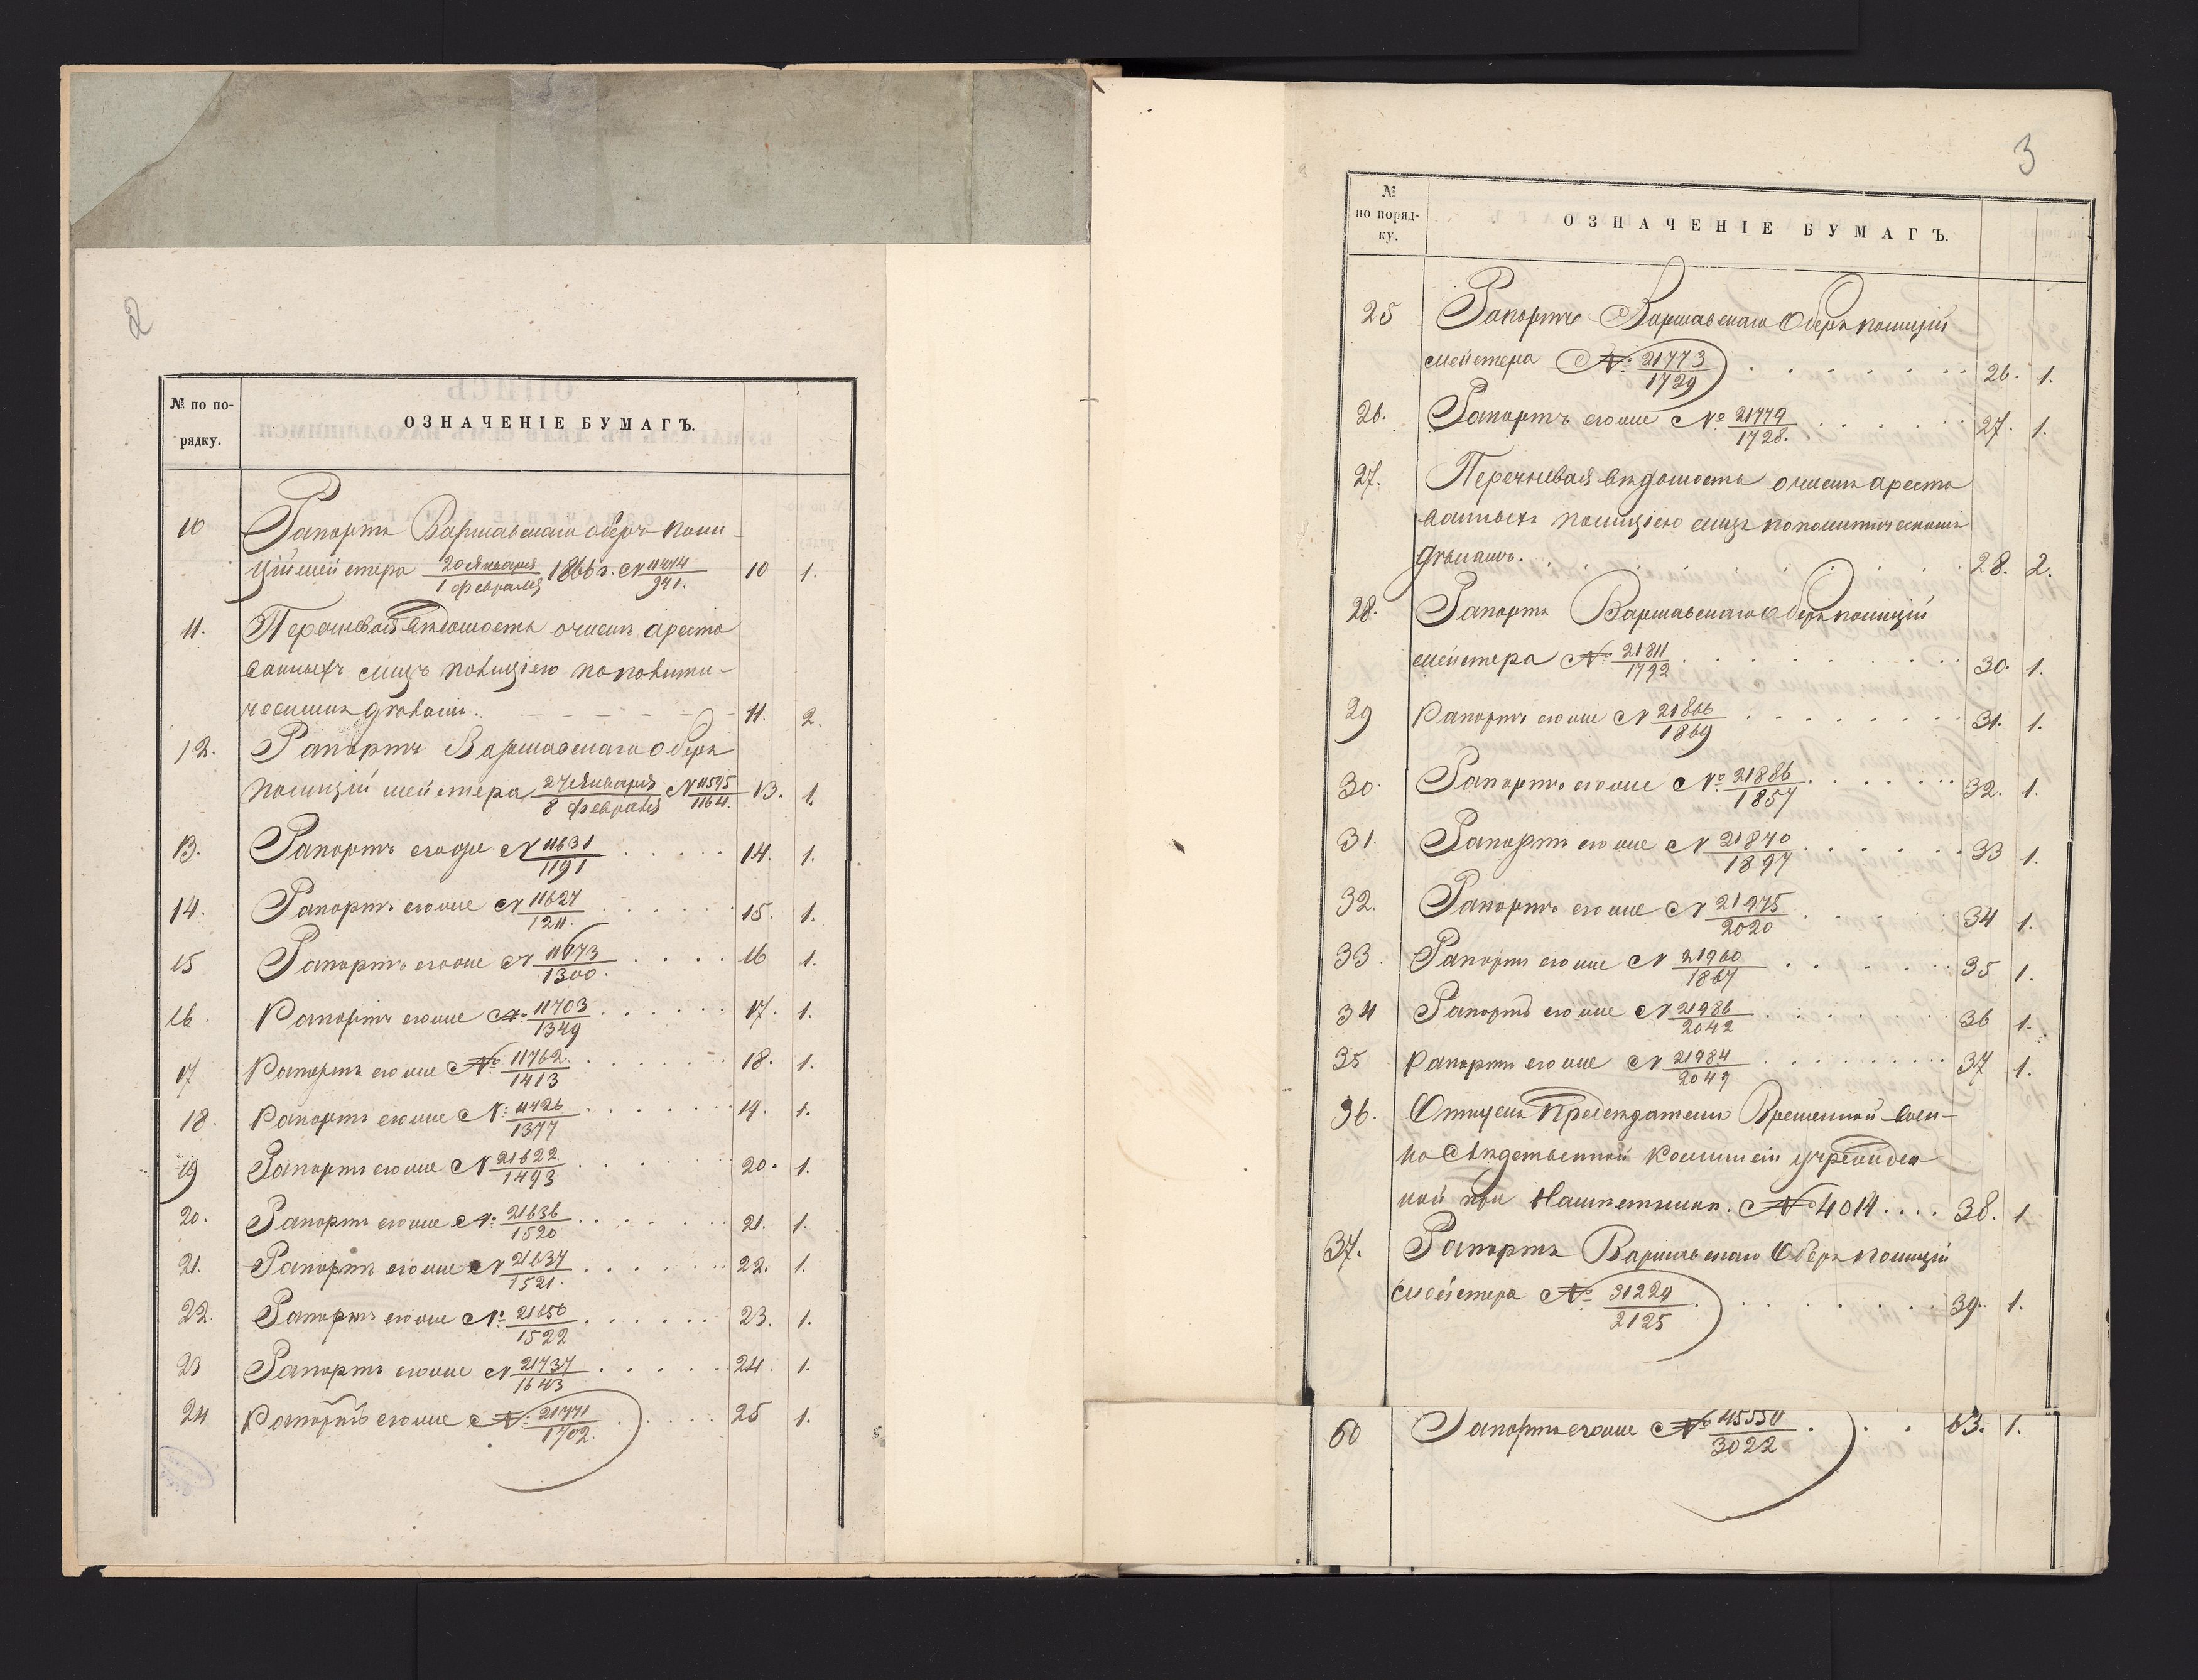 2
№ по по-
рядку.
ОЗНАЧЕНІЕ БУМАГЪ.
10 Рапортъ Варшавскаго оберъ-поли-
ційместера 20 Января / 1 февраля 1866 г. № 11474/941. 10 1.
11. Перечневая вѣдомость о числѣ аресто
ванныхъ лицъ полиціею по полити-
ческимъ дѣламъ. 11. 2.
12. Рапортъ Варшавскаго оберъ
полиціймейстера 27 Января / 8 февраля № 11595/1164. 13. 1.
13. Рапортъ егоже № 11631/1191 14. 1.
14. Рапортъ егоже № 11627/1211. 15. 1.
15 Рапортъ егоже № 11673/1300. 16 1.
16. Рапортъ егоже № 11703/1349 17. 1.
17 Рапортъ егоже № 11762./1413 18. 1.
18. Рапортъ егоже № 11726/1377 19. 1.
19 Рапортъ егоже № 21622/1493 20. 1.
20. Рапортъ егоже № 21636/1520 21. 1.
21. Рапортъ егоже № 21637/1521. 22. 1.
22. Рапортъ егоже № 21656/1522 23. 1.
23 Рапортъ егоже № 21737/1643 24. 1.
24 Рапортъ егоже № 21771/1702. 25 1.
3
№
по поряд-
ку.
ОЗНАЧЕНІЕ БУМАГЪ.
25 Рапортъ Варшавскаго Оберъ полицій
мейстера № 21773/1729 26. 1.
26. Рапортъ егоже № 21779/1728. 27. 1.
27. Перечневая вѣдомость о числѣ аресто
ванныхъ полиціею лицъ по политическимъ
дѣламъ. 28. 2.
28. Рапортъ Варшавскаго Оберъ полицій
мейстера № 21811/1792 30. 1.
29 Рапортъ егоже № 21866/1869 31. 1.
30. Рапортъ егоже № 21886/1857 32. 1.
31. Рапортъ егоже № 21870/1897 33 1.
32. Рапортъ егоже № 21975/2020 34 1.
33. Рапортъ егоже № 21900/1867 35 1.
34 Рапортъ егоже № 21986/2042 36 1.
35 Рапортъ егоже № 21984/2049 37 1.
36. Отпускъ Предсѣдателю Временной Воен-
но Слѣдственной Коммисіи учрежден
ной при Намѣстникѣ. № 4014 38. 1.
37. Рапортъ Варшавскаго Оберъ полицій
мейстера № 31229/2125 39. 1.
60 Рапортъ егоже № 45550/3022 63. 1.